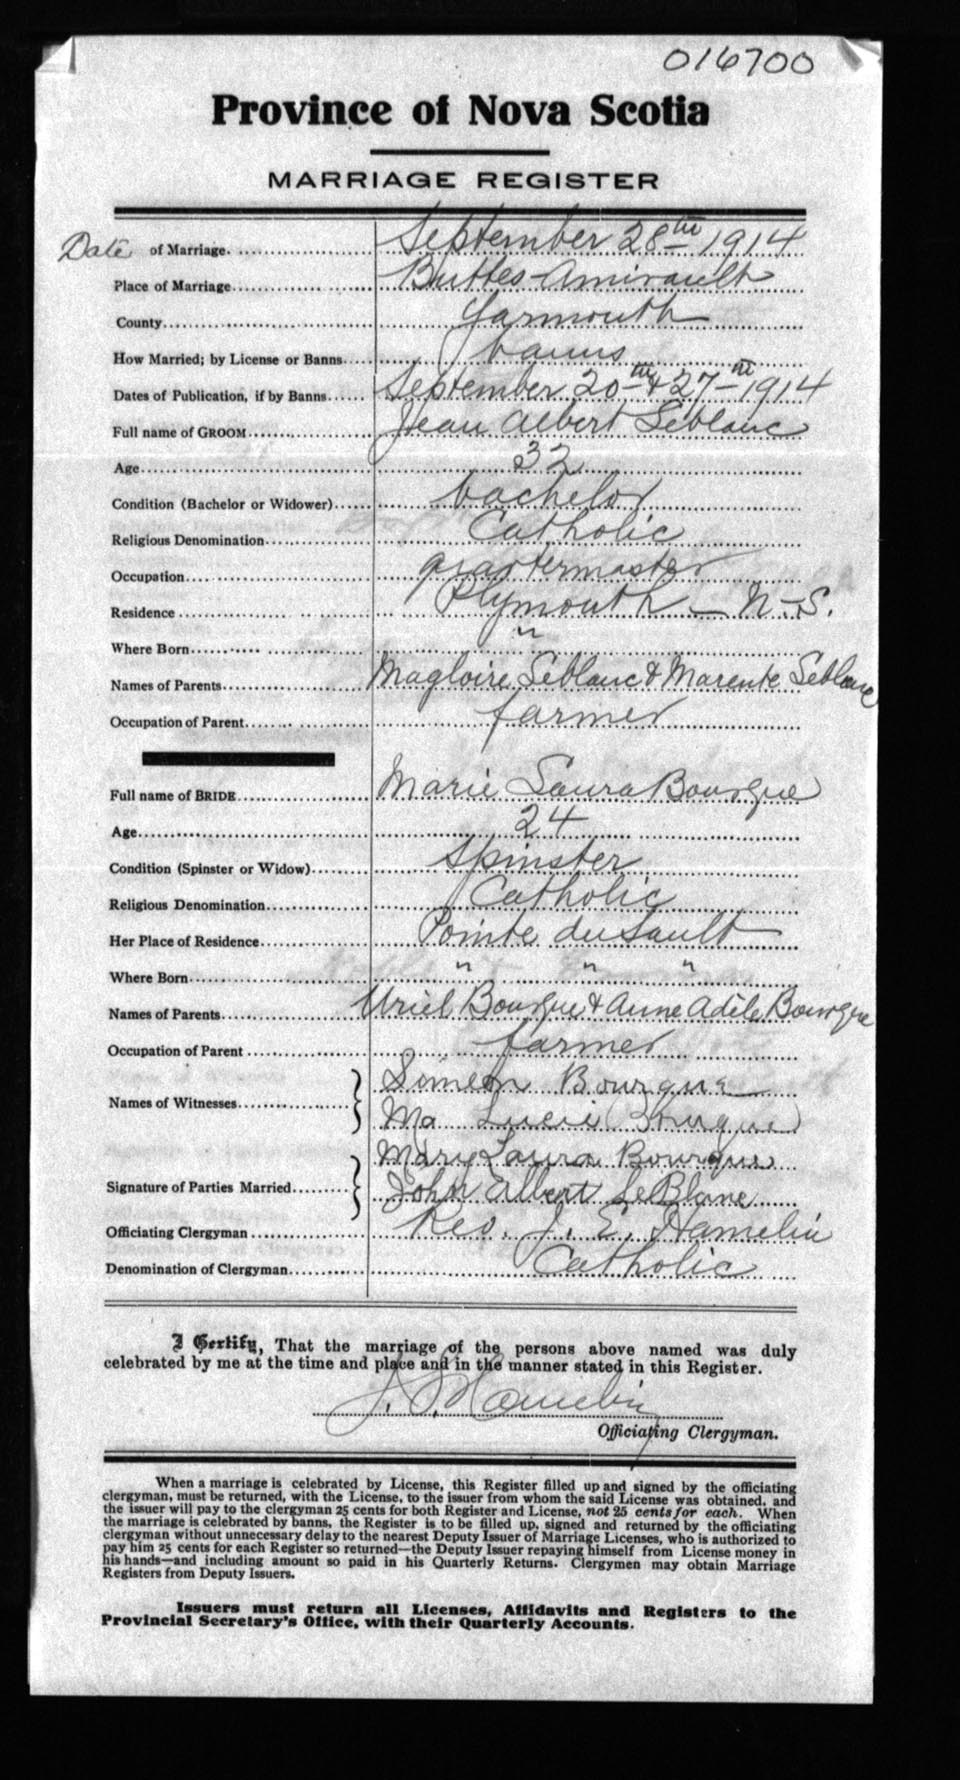 016700
Province of Nova Scotia
MARRIAGE REGISTER
Date of Marriage September 28th 1914
Place of Marriage Buttes-Amirault
County Yarmouth
How Married; by License or Banns banns
Dates of Publication, if by Banns September 20th & 27th 1914
Full name of GROOM Jean Albert Leblanc
Age 32
Condition (Bachelor or Widower) bachelor
Religious Denomination Catholic
Occupation quartermaster
Residence Plymouth - N-S.
Where Born "
Names of Parents Magloire Leblanc & Marente Leblanc
Occupation of Parent farmer
Full name of BRIDE Marie Laura Bourque
Age 24
Condition (Spinster or Widow) Spinster
Religious Denomination Catholic
Her Place of Residence Pointe du Sault
Where Born " " "
Names of Parents Uriel Bourque & Anne Adèle Bourque
Occupation of Parent farmer
Names of Witnesses Simeon Bourque
Ma Lucie Bourque
Mary Laura Bourque
Signature of Parties Married John Albert LeBlanc
Officiating Clergyman Rev. J. E. Hamelin
Denomination of Clergyman Catholic
I Certify, That the marriage of the persons above named was duly
celebrated by me at the time and place and in the manner stated in this Register.
J. E. Hamelin
Officiating Clergyman.
When a marriage is celebrated by License, this Register filled up and signed by the officiating
clergyman, must be returned, with the License, to the issuer from whom the said License was obtained, and
the issuer will pay to the clergyman 25 cents for both Register and License, not 25 cents for each. When
the marriage is celebrated by banns, the Register is to be filled up, signed and returned by the officiating
clergyman without unnecessary delay to the nearest Deputy Issuer of Marriage Licenses, who is authorized to
pay him 25 cents for each Register so returned—the Deputy Issuer repaying himself from License money in
his hands—and including amount so paid in his Quarterly Returns. Clergymen may obtain Marriage
Registers from Deputy Issuers.
Issuers must return all Licenses, Affidavits and Registers to the
Provincial Secretary's Office, with their Quarterly Accounts.